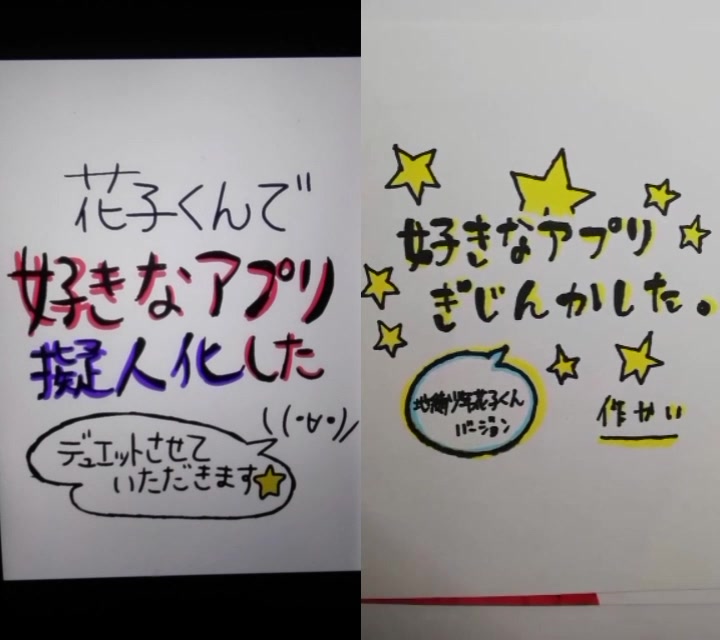 花子くんで
好きなアプリ
擬人化した
\(・∀・)/
デュエットさせて
いただきます
好きなアプリ
ぎじんかした。
地縛少年花子くん
バージョン
作 かい